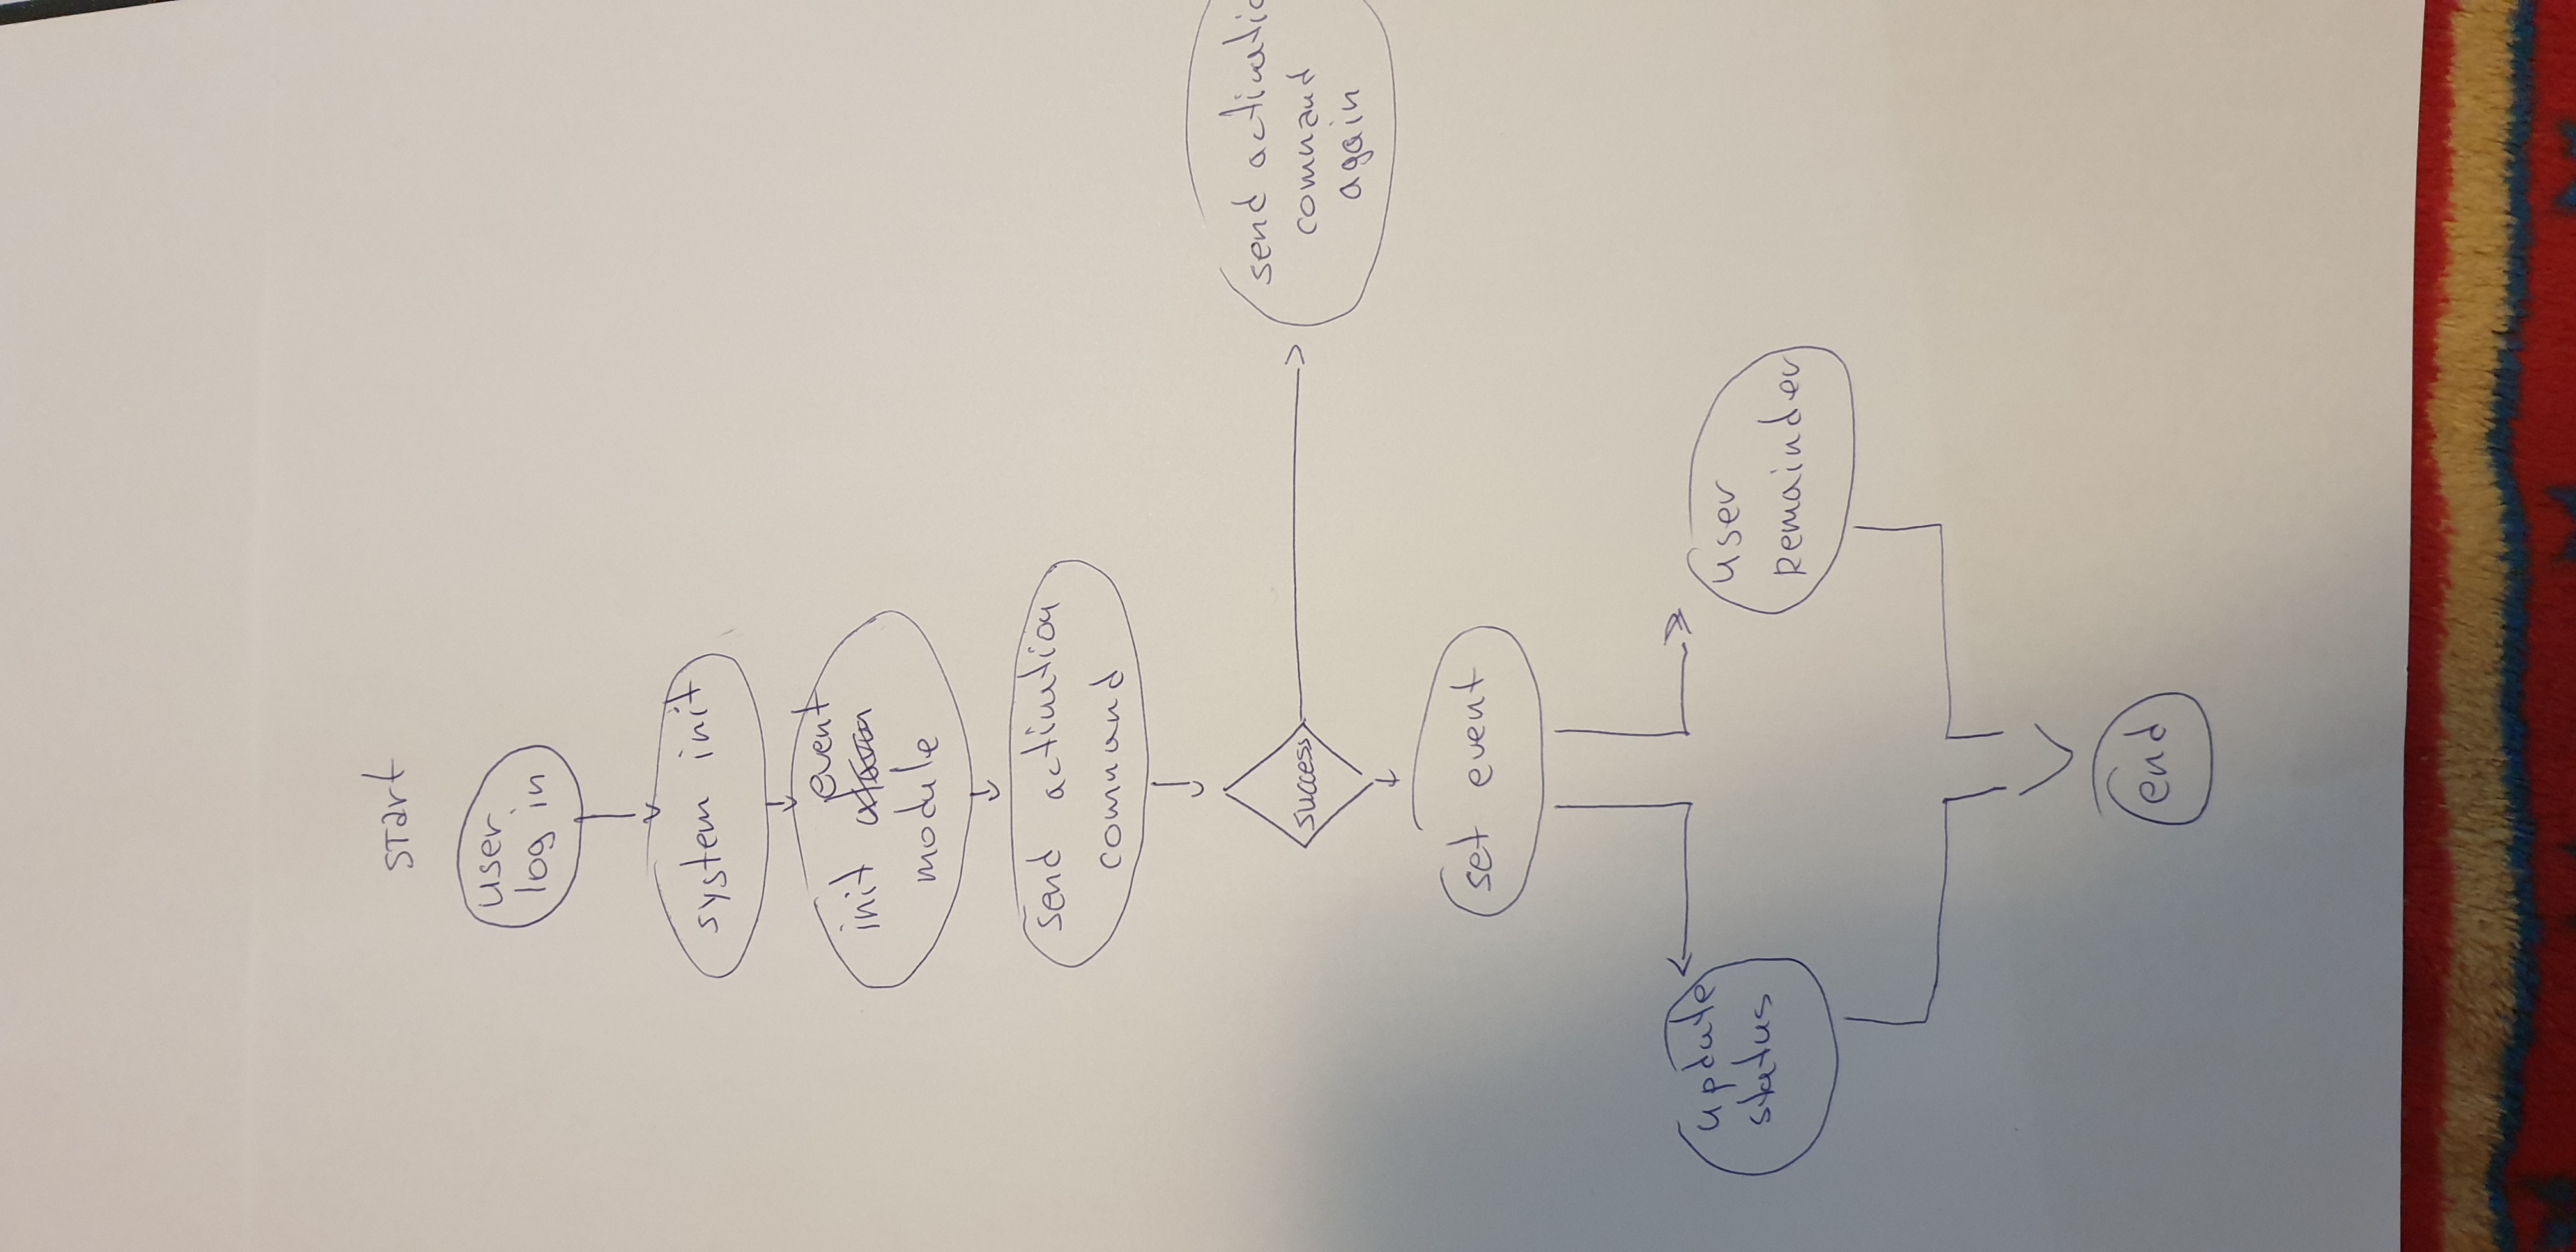 start
user
log in
system init
event
init
module
send activation
command
success
send activatio
command
again
set event
update
status
user
Remainder
end